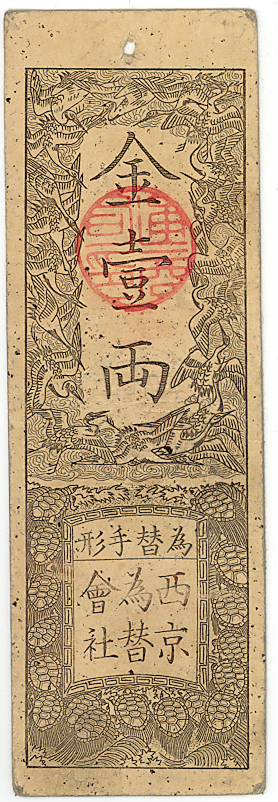 金壹兩
為替手形
西京
為替
會社